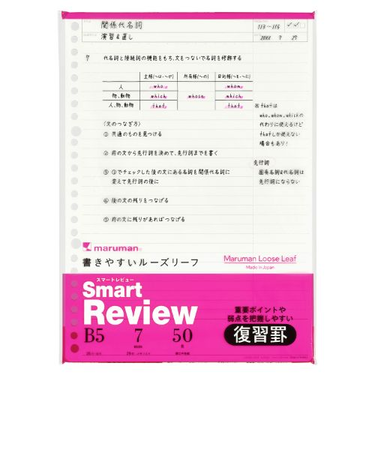 関係代名詞
113〜116
演習&直し
代名詞と接続詞の機能をもち、文をつないで名詞を修飾する
主格(〜は・〜が)
所有格(〜の)
目的格(〜を・〜に)
人
who
whom
物、動物
which
whose
which
人、物、動物
that
that
(文のつなぎ方)
① 共通のものを見つける
② 前の文から先行詞を決めて、先行詞までを書く
③ ①でチェックした後の文にある名詞を関係代名詞に
変えて先行詞の後に
④ 後の文の残りをつなげる
⑤ 前の文に残りがあればつなげる
※ thatは
who, whom, whichの
代わりに使えるけど
thatしか使えない
場合もあり!
先行詞
固有名詞や代名詞は
先行詞にならない
maruman
書きやすいルーズリーフ
Maruman Loose Leaf
Made in Japan
スマートレビュー
Smart
Review
B5
7
50
重要ポイントや
弱点を把握しやすい
復習罫